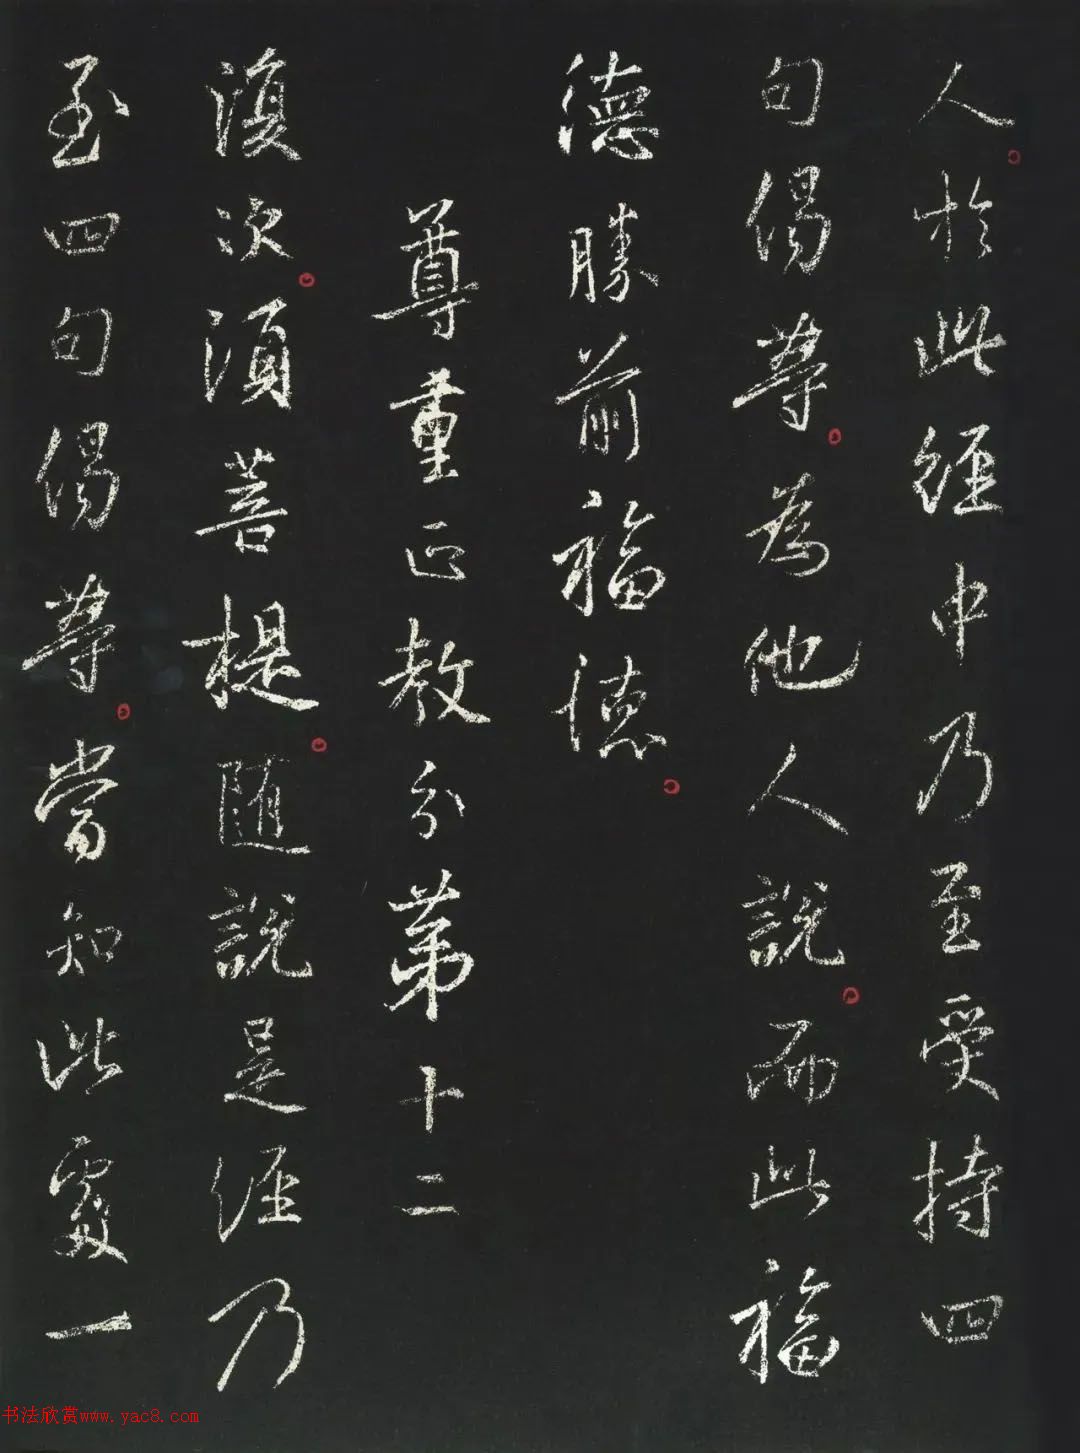 人於此經中乃至受持四
句偈等為他人說而此福
德勝前福德
尊重正教分第十二
復次須菩提隨說是經乃
至四句偈等當知此處一
书法欣赏www.yac8.com